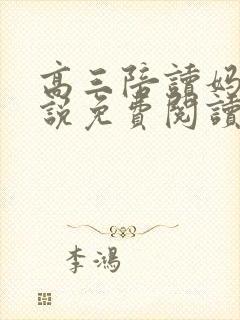 高三陪讀媽
說免費閱讀
李鴻